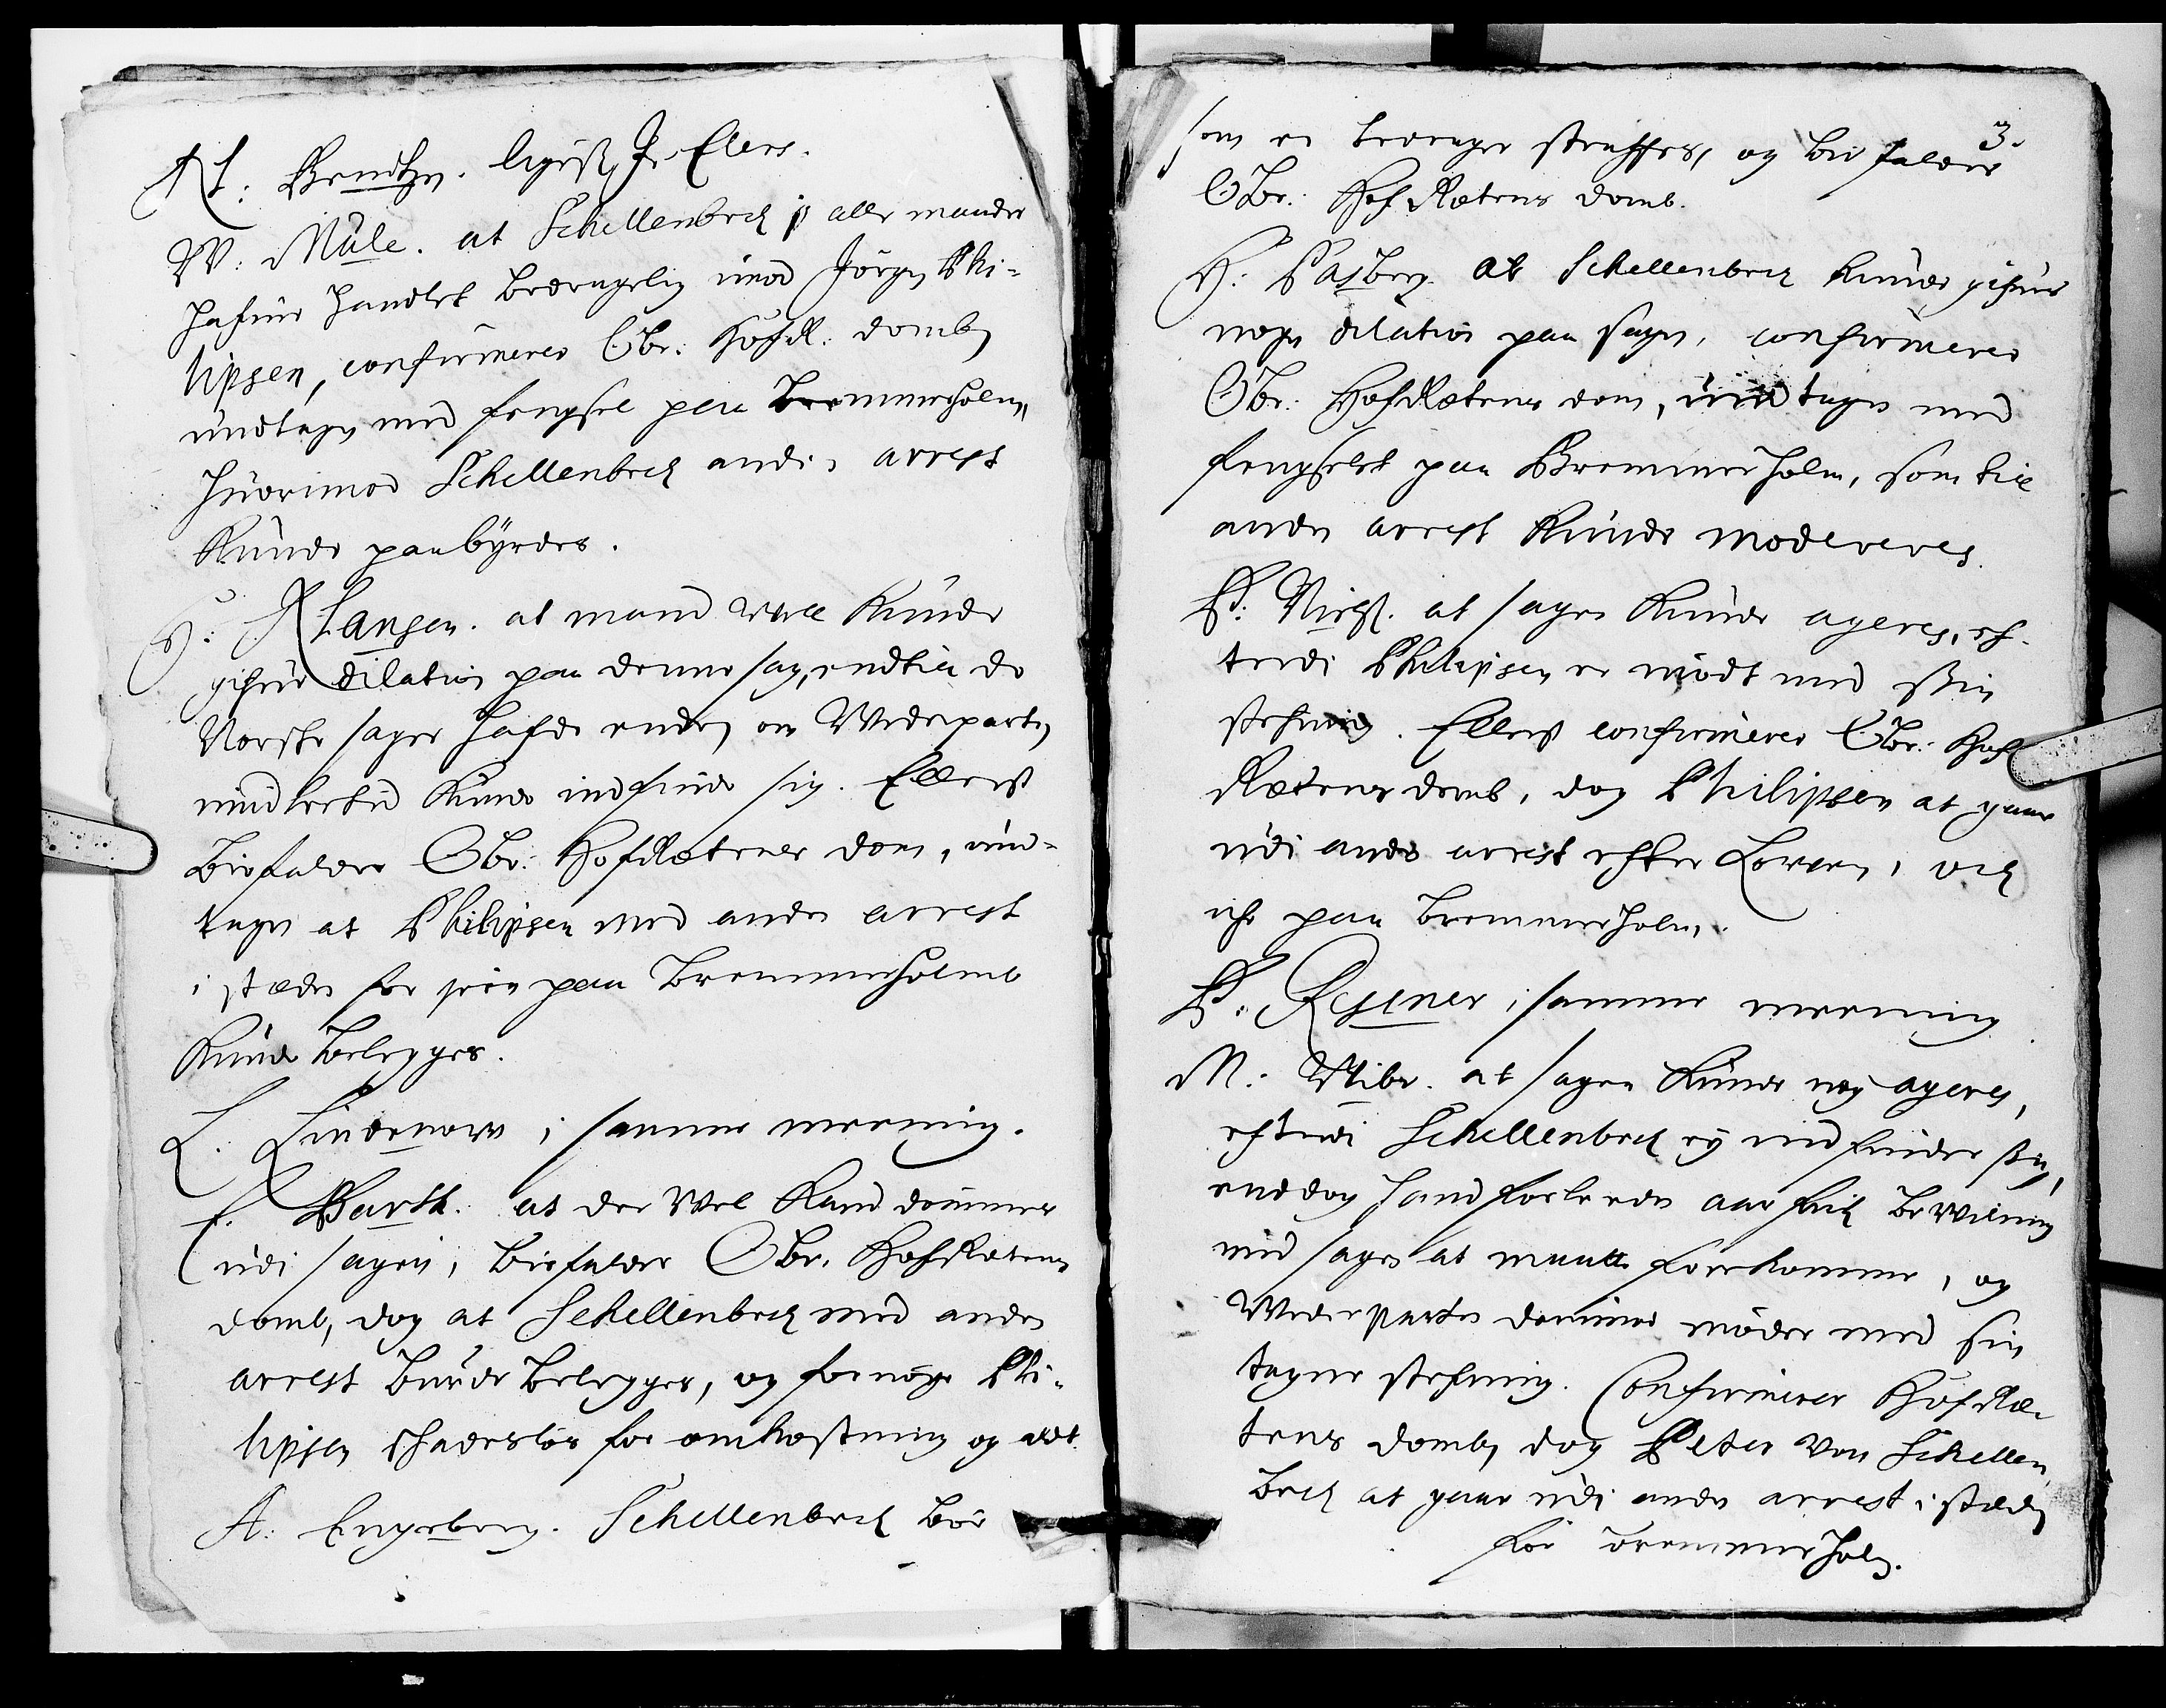 At: Bendtzen. ligesz Jr Elers.
W: Mule. at Schellenbech J alle maader
hafuer handlet bedragelig imod Jörgen Phi-
lipsen, confirmeres Obr: HofR: domb,
undtagen med fengsel paa Bremmerholm,
huorimod Schellenbech anden arrest
Kunde paabyrdes.
H: Hansen. at mand well Kunde
gifue dilation paa denne sag, indtil de
Norske sager hafde ende, om Wederparten
midlertid Kunde indfinde sig. Ellers
biefalder Obr: HofRetens dom, und-
tagen at Philipsen med anden arrest
i stæden for paa Bremmerholmb
Kunde belegges.
L. Lindenow i samme meening.
C. Barth. at der Wel Kand dømmes
udi sagen, biefalder Obr. HofRetens
domb, dog at Schellenbech med anden
arrest burde belegges, og fornøye Phi-
lipsen schadesløs for omkostning og
A: Engeberg. Schellenbech bør
3.
som en bedrager straffes, og bie falder
Obr: HofRetens domb.
H: Pasberg. at Schellenbech Kunde gifues
nogen dilation paa sagen, confirmeres
Obr: HofRetens dom, und tagen med
fengselet paa Bremmerholm, som til
anden arrest Kunde modereres.
P: at sagen Kunde ageres, ef-
terdi Philipsen er mødt med sin
stefning. Ellers confirmeres Obr: Hof
Retens domb, dog Philipsen at gaae
udi anden arrest effter Lowen, och
iche paa Bremmerholm.
P: Resener i samme meening
M: Wibe. at sagen Kunde nog ageres,
efterdi Schellenbech ey ind finder sig,
enddog hand forleeden aar fich bewilning
med sagen at maatte forekomme, og
Wederparten møder med sin
tagne stefning. Confirmerer HofRe-
tens domb, dog Peter von Schellen
bech at gaae udi anden arrest i stæden
for Bremmerholm.